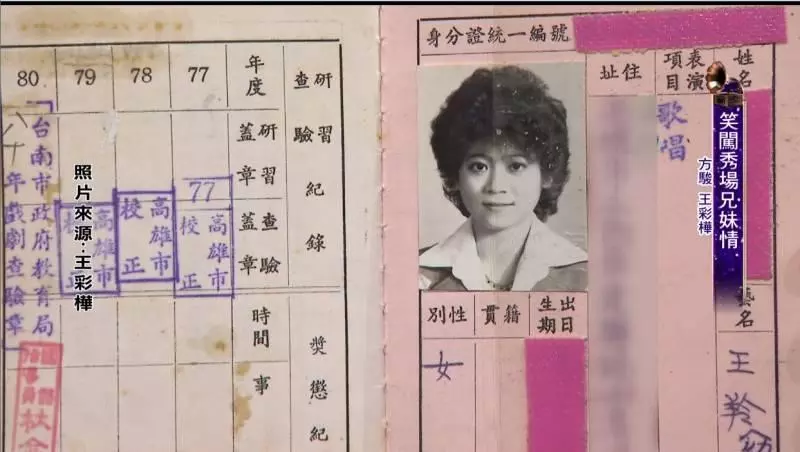 身分證統一編號
姓名
表演項目
歌唱
住址
出生日期
籍貫
性別
女
藝名
王羚
笑闖秀場兄妹情
方駿 王彩樺
研習查驗紀錄
年度
77
78
79
80
研習蓋章
查驗蓋章
77
高雄市校正
高雄市校正
高雄市校正
台南市政府教育局
八十年戲劇查驗章
獎懲紀
時間
事
照片來源:王彩樺